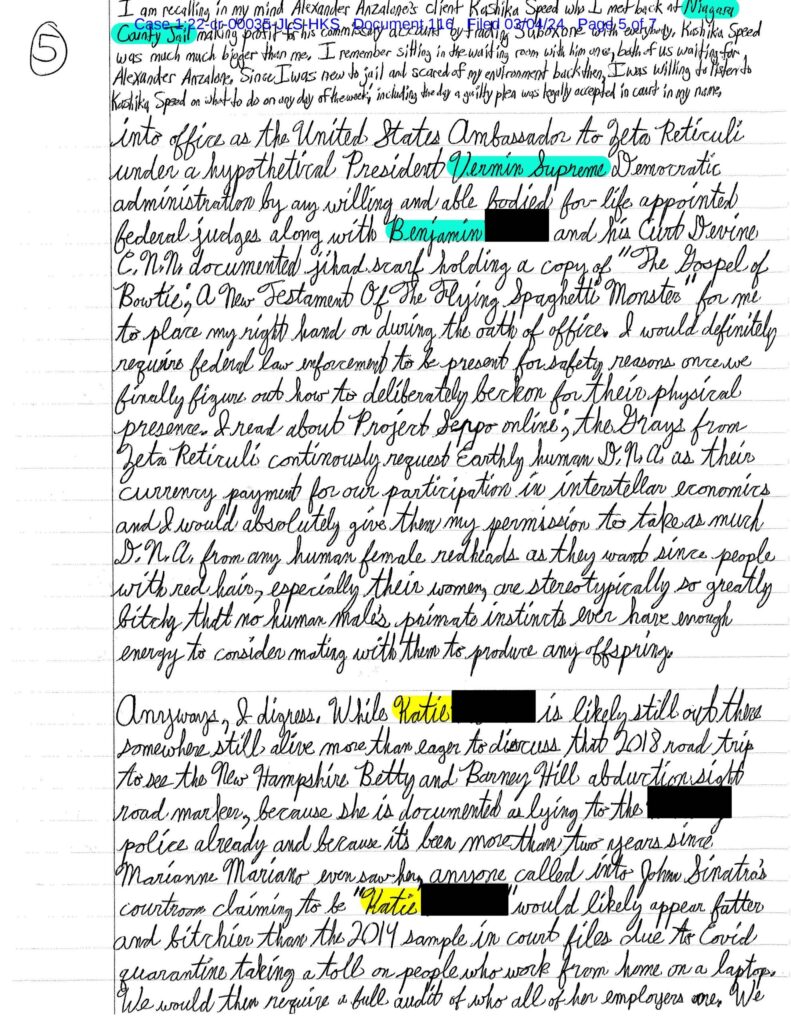 5
I am recalling in my mind Alexander Anzalone's client Kashika Speed who I met back at Niagara
Case 1:22-cr-00035-JLS-HKS Document 116 Filed 03/04/24 Page 5 of 7
County Jail making profit for his commissary account by trading Suboxone with everybody, Kashika Speed
was much much bigger than me, I remember sitting in the waiting room with him once, both of us waiting for
Alexander Anzalone, Since I was new to jail and scared of my environment back then, I was willing to listen to
Kashika Speed on what to do on any day of the week, including the day a guilty plea was legally accepted in court in my name,
into office as the United States Ambassador to Zeta Reticuli
under a hypothetical President Vermin Supreme Democratic
administration by any willing and able bodied for-life appointed
federal judges along with Benjamin and his Curt Devine
C.N.N. documented jihad scarf holding a copy of "The Gospel of
Bowtie; A New Testament Of The Flying Spaghetti Monster" for me
to place my right hand on during the oath of office. I would definitely
require federal law enforcement to be present for safety reasons once we
finally figure out how to deliberately beckon for their physical
presence. I read about Project Seppo online; the Grays from
Zeta Reticuli continously request Earthly human D.N.A. as their
currency payment for our participation in interstellar economics
and I would absolutely give them my permission to take as much
D.N.A. from any human female redheads as they want since people
with red hair, especially their women, are stereotypically so greatly
bitchy that no human male's primate instincts ever have enough
energy to consider mating with them to produce any offspring.
Anyways, I digress. While Katie is likely still out there
somewhere still alive more than eager to discuss that 2018 road trip
to see the New Hampshire Betty and Barney Hill abduction sight
road marker, because she is documented as lying to the
police already and because it's been more than two years since
Marianne Mariano even saw her, anyone called into John Sinatra's
courtroom claiming to be "Katie " would likely appear fatter
and bitchier than the 2014 sample in court files due to Covid
quarantine taking a toll on people who work from home on a laptop.
We would then require a full audit of who all of her employers are. We